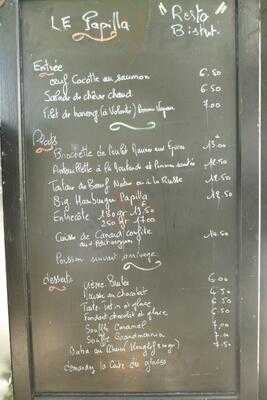 LE Papilla
"Resto
Bistrot"
Entrée
oeuf Cocotte au saumon 6.50
Salade de chèvre chaud 6.50
Filet de hareng (à Volonté) Pomme Vapeur 7.00
Plats
Brochette de Poulet Marine aux Epices 13.00
Andouillette à la Moutarde et Pommes sauté 12.50
Tartare de Boeuf Nature ou à la Russe 18.50
Big Hamburger Papilla 18.50
Entrecôte 180 gr 13.50
250 gr 17.00
Cuisse de Canard confite 14.50
Poisson suivant arrivage
desserts
Crème Brulée 6.00
Mousse au chocolat 6.50
Tarte tatin et glace 6.50
Fondant chocolat et glace 6.50
Soufflé Caramel 7.00
Soufflé Grandmarnier 7.00
Baba au Rhum 7.50
demandez la Carte des glaces